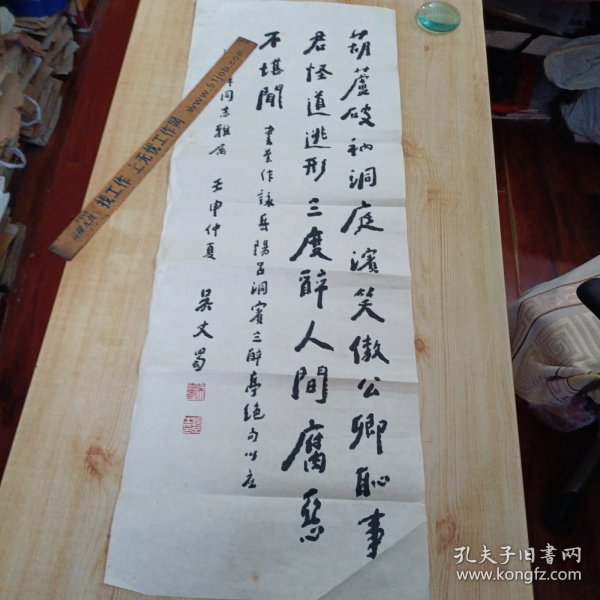 葫蘆破衲洞庭濱笑傲公卿恥事
君怪道逃形三度醉人間腐惡
不堪聞 書舊作詠岳陽呂洞賓三醉亭絕句以應
同志雅属 壬申仲夏 吴丈蜀
找工作 上无忧工作网
www.51job.com
孔夫子旧书网
www.kongfz.com